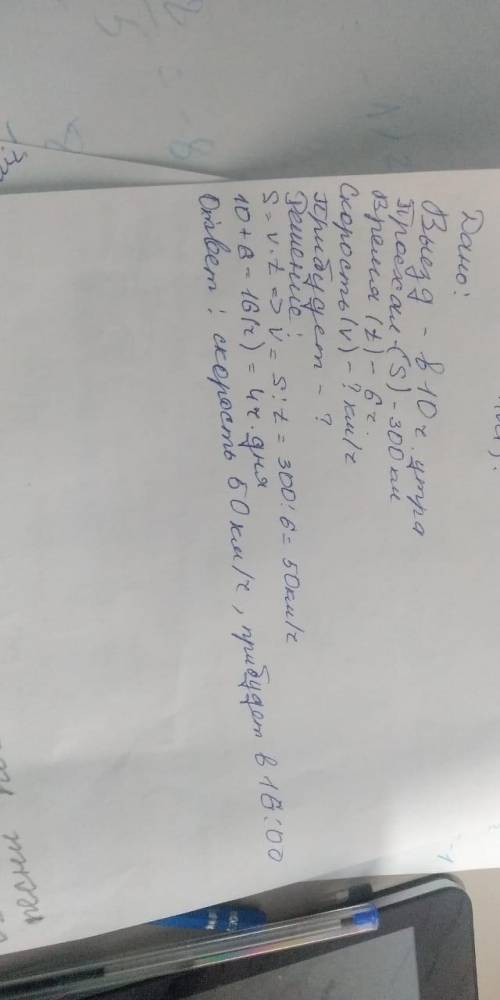 Дано:
Выезд - в 10 ч. утра
Проехал (S) - 300 км
Время (t) - 6 ч.
Скорость (v) - ? км/ч
Прибудет - ?
Решение:
S = v · t => v = S : t = 300 : 6 = 50 км/ч
10 + 6 = 16 (ч) = 4 ч. дня
Ответ: скорость 50 км/ч, прибудет в 16:00